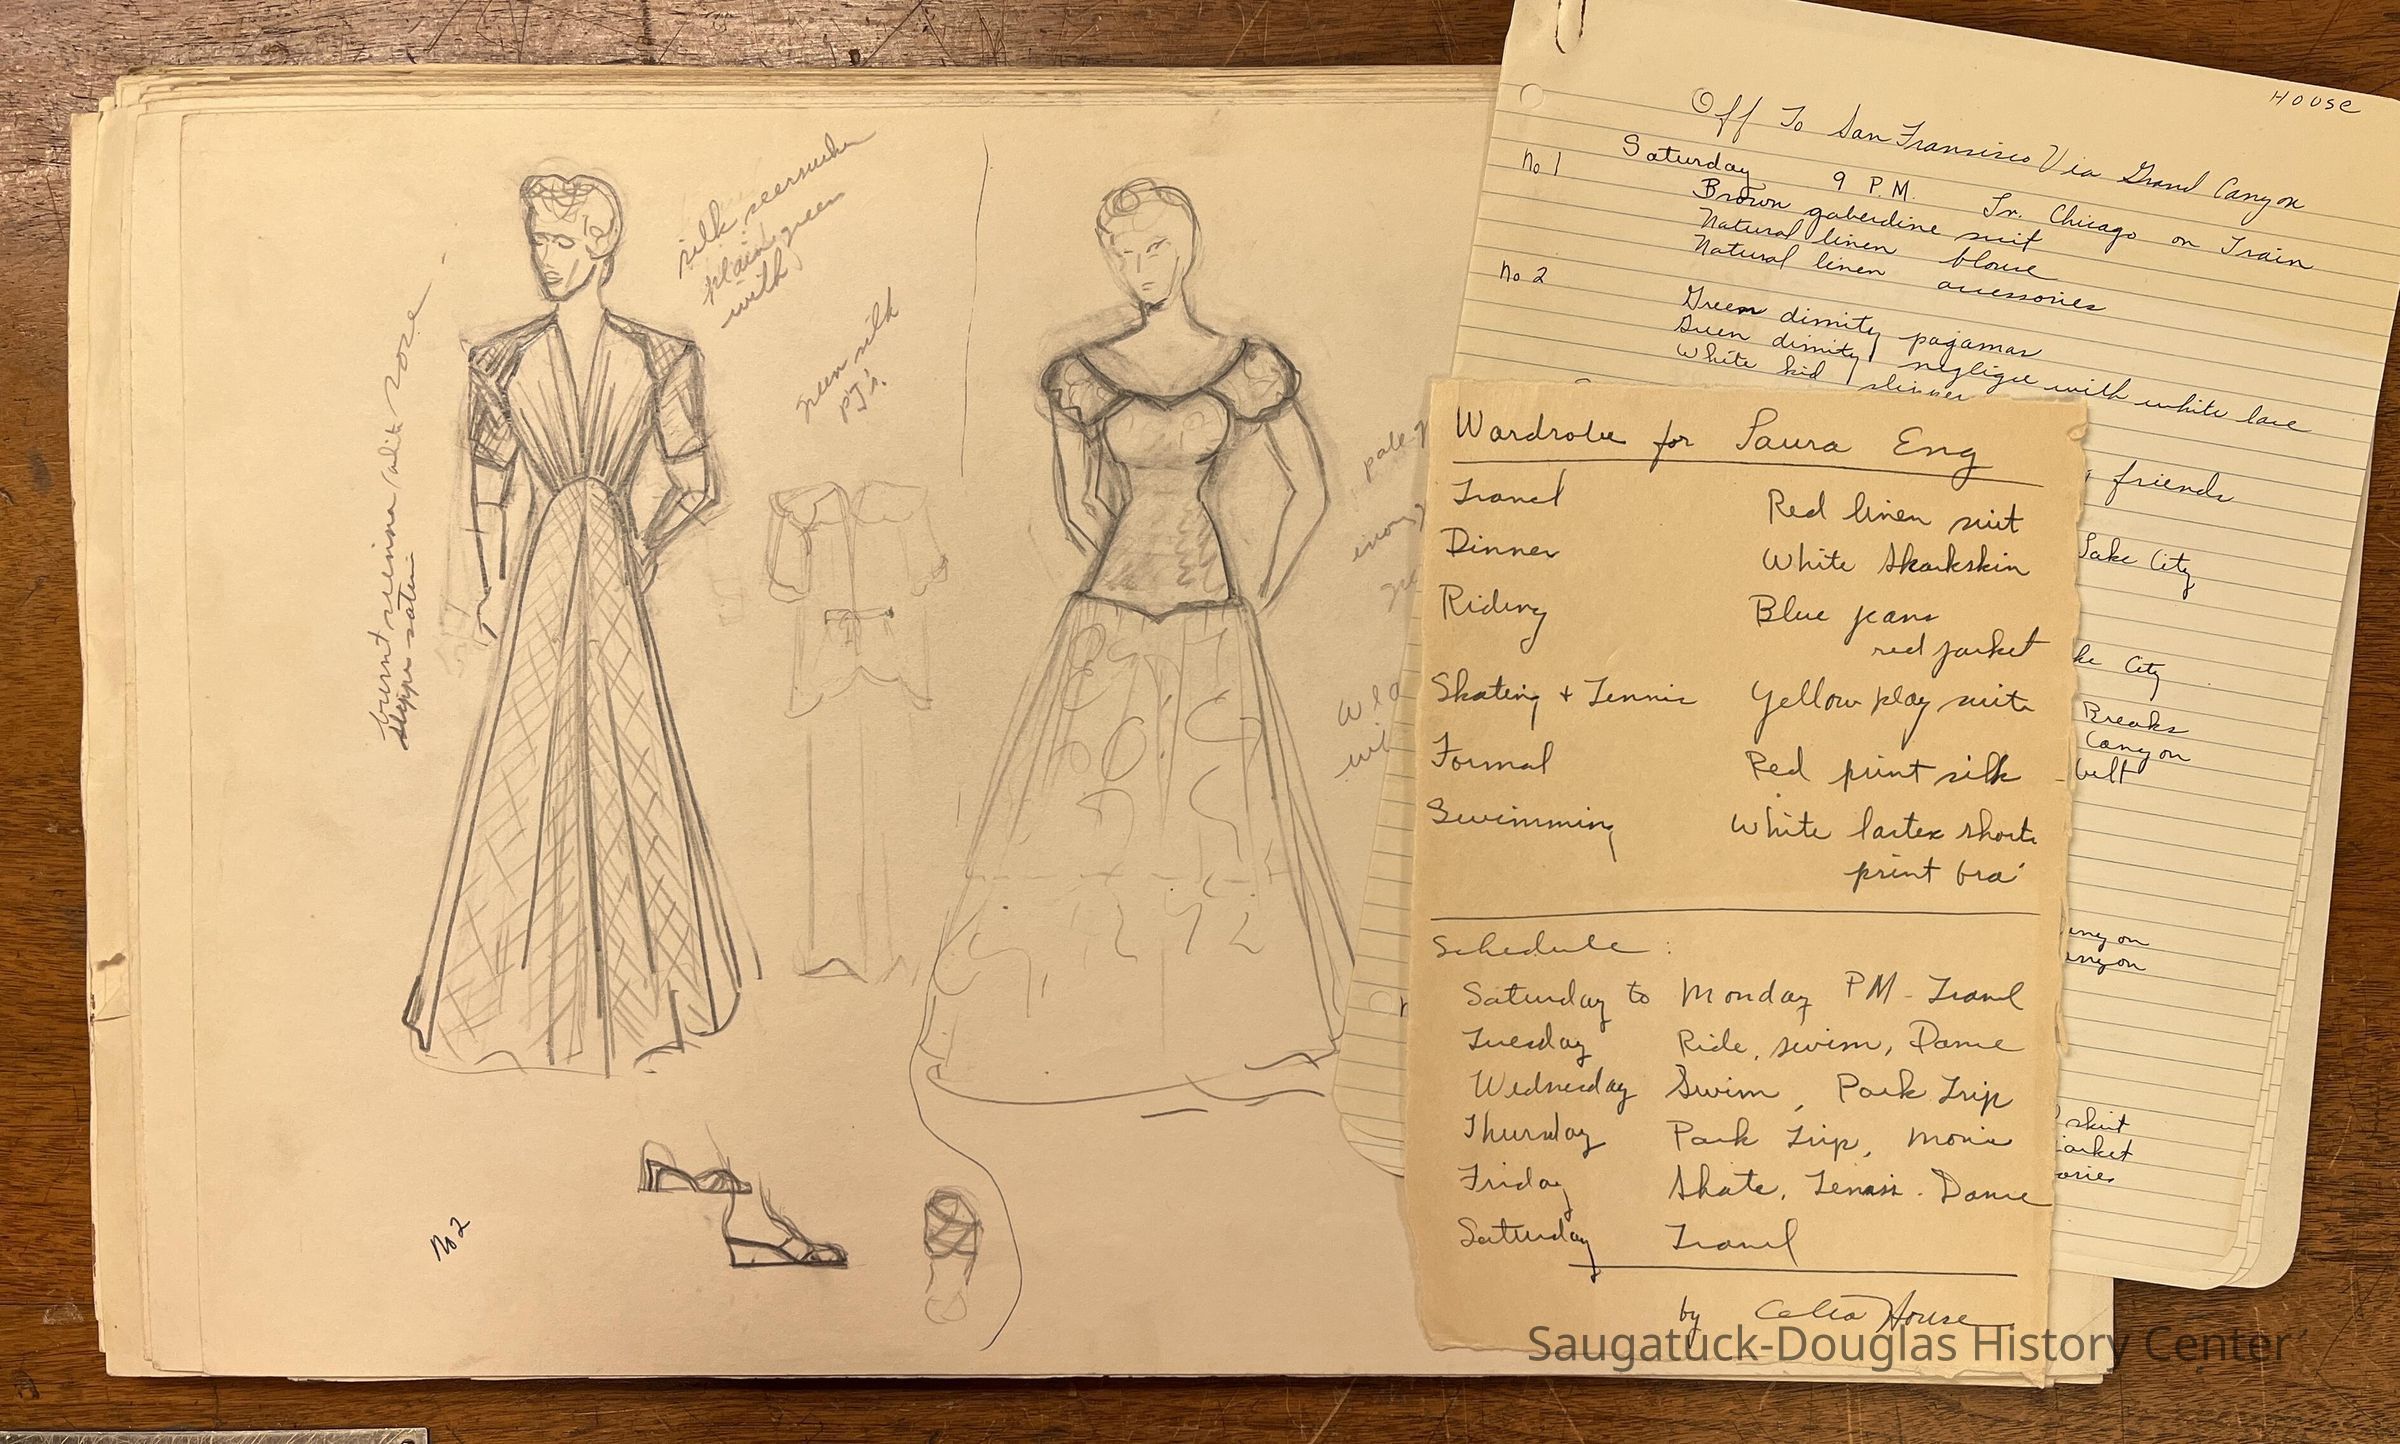 silk seersucker
plain green
with
green silk
PJ's.
burnt sienna
slipper satin
No 2
HOUSE
Off To San Francisco Via Grand Canyon
No 1 Saturday 9 P.M. Lv. Chicago on Train
Brown gaberdine suit
Natural linen blouse
Natural linen accessories
No 2
Green dimity pajamas
Green dimity negligee with white lace
White kid slipper
friends
Lake City
City
Breaks
Canyon
belt
skirt
Wardrobe for Laura Eng
Travel Red linen suit
Dinner White Sharkskin
Riding Blue jeans
red jacket
Skating + Tennis Yellow play suit
Formal Red print silk
Swimming White lastex shorts
print bra
Schedule :
Saturday to Monday PM - Travel
Tuesday Ride, swim, Dance
Wednesday Swim, Pack Trip
Thursday Pack Trip, Movie
Friday Skate, Tennis. Dance
Saturday Travel
by Celia House
Saugatuck-Douglas History Center